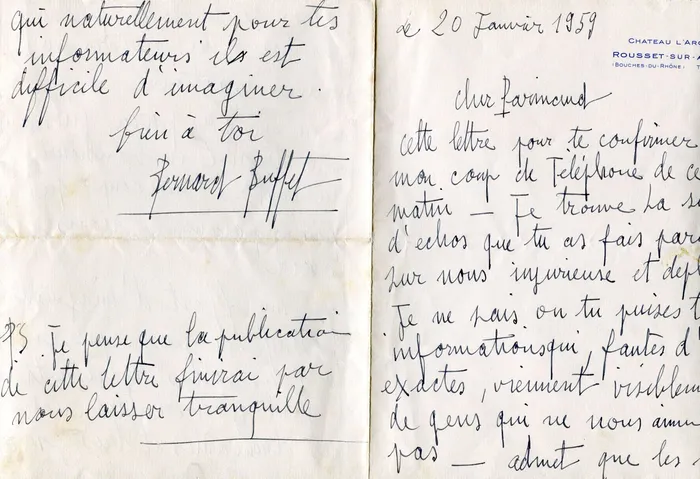 le 20 Janvier 1959
CHATEAU L'ARC
ROUSSET-SUR-A
(BOUCHES-DU-RHÔNE) T
cher
cette lettre pour te confirmer
mon coup de Téléphone de ce
matin — Je trouve la s
d'echos que tu as fais par
sur nous injurieuse et depl
Je ne sais ou tu puises t
informations qui, fautes d'
exactes, viennent visiblem
de gens qui ne nous aim
pas — admet que les
qui naturellement pour tes
informateurs ils est
difficile d'imaginer.
bien à toi
Bernard Buffet
PS. Je pense que la publication
de cette lettre finirai par
nous laisser tranquille